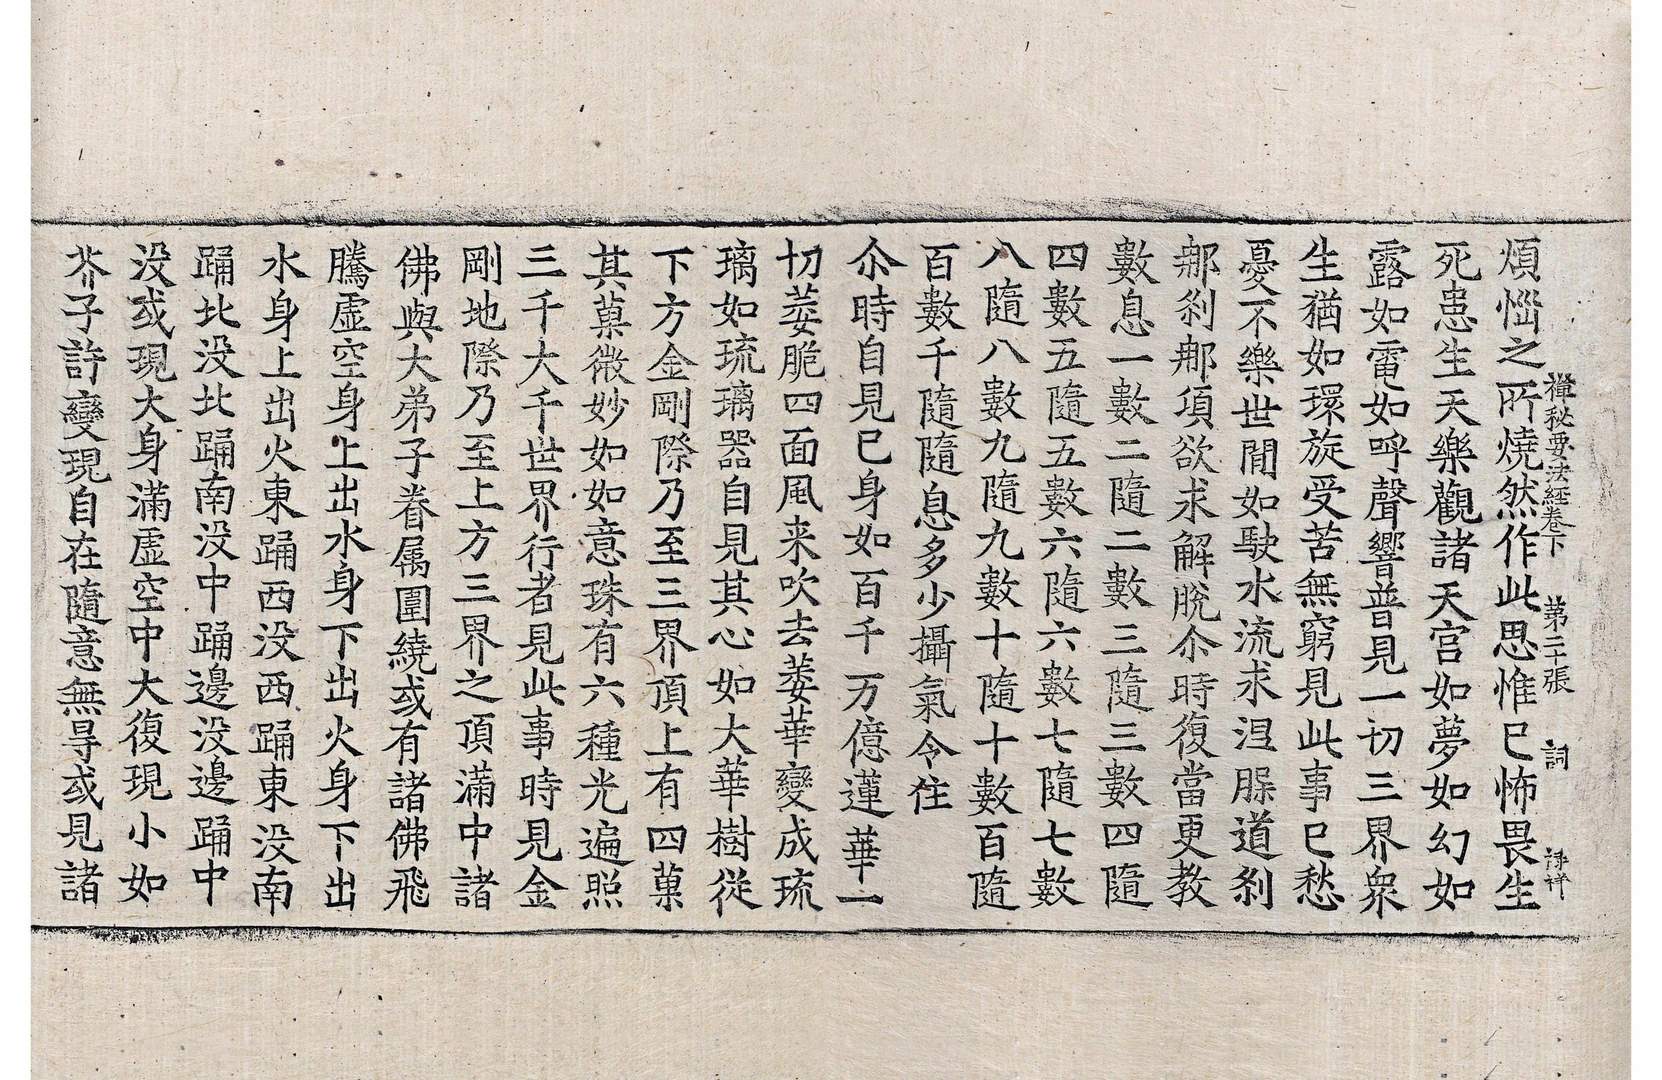 禪秘要法經卷下 第二十張 詞
煩惱之所燒然作此思惟已怖畏生
死患生天樂觀諸天宮如夢如幻如
露如雷如呼聲響普見一切三界衆
生猶如環旋受苦無窮見此事已愁
憂不樂世間如駛水流求涅脲道刹
那刹那項欲求解脫尒時復當更教
數息一數二隨二數三隨三數四隨
四數五隨五數六隨六數七隨七數
八隨八數九隨九數十隨十數百隨
百數千隨隨息多少攝氣令住
尒時自見已身如百千万億蓮華一
切萎脆四面風来吹去萎華變成琉
璃如琉璃器自見其心如大華樹從
下方金剛際乃至三界頂上有四菓
其菓微妙如如意珠有六種光遍照
三千大千世界行者見此事時見金
剛地際乃至上方三界之頂滿中諸
佛與大弟子眷属圍繞或有諸佛飛
騰虛空身上出水身下出火身下出
水身上出火東踊西没西踊東没南
踊北没北踊南没中踊邊没邊踊中
没或現大身滿虛空中大復現小如
芥子許變現自在隨意無㝵或見諸